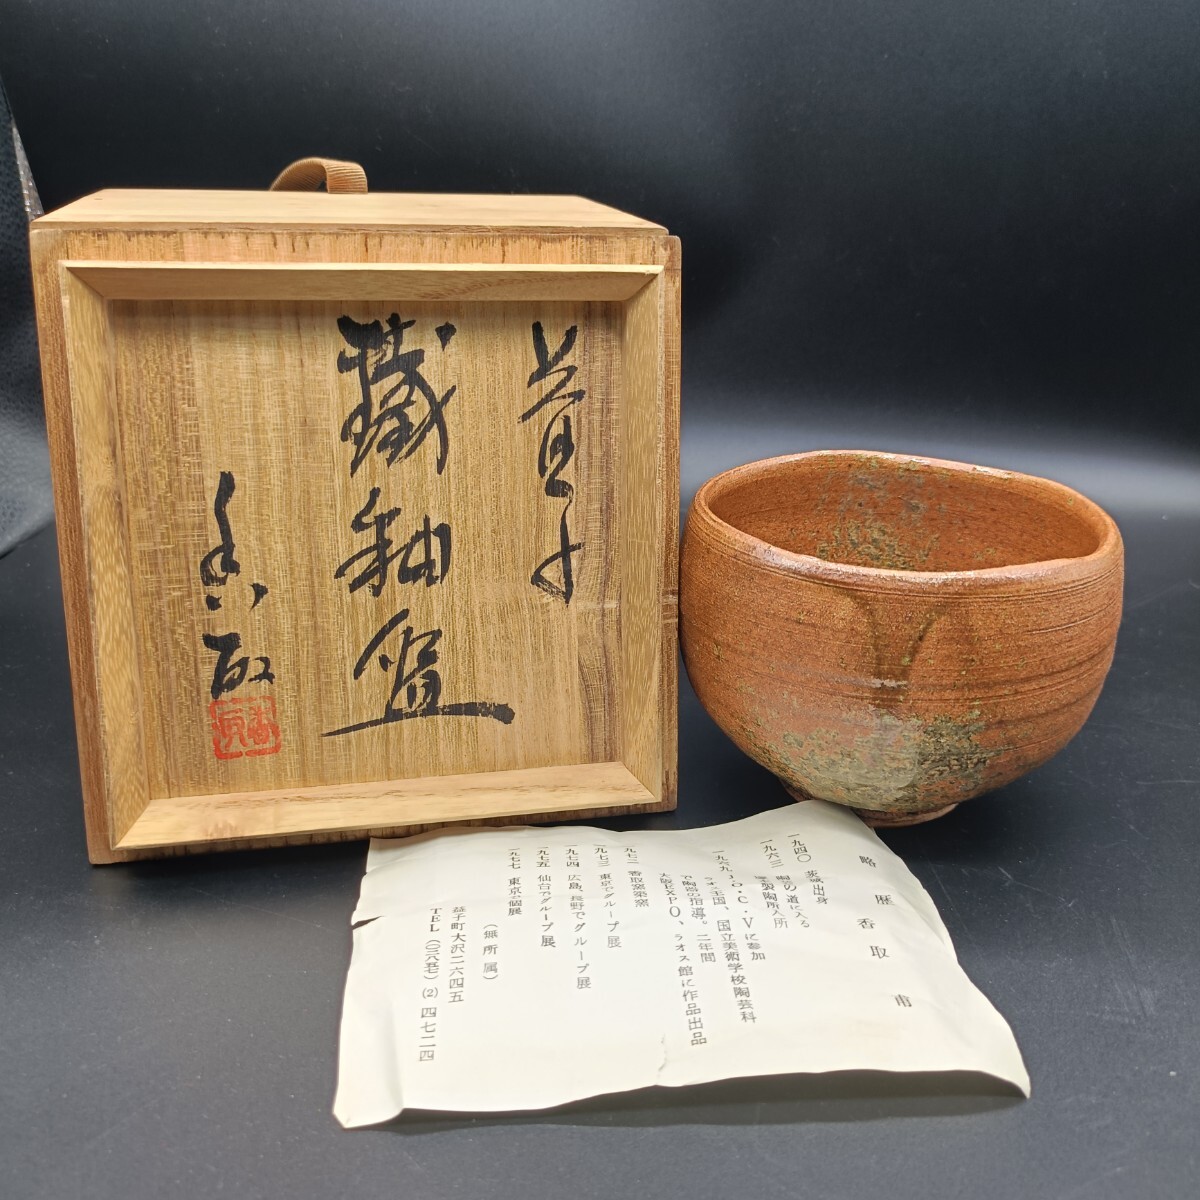 益子
鐵釉盌
香取
略歴 香取 甫
一九四〇 茨城出身
一九六三 陶の道に入る
製陶所入所
一九六九 J.O.C.Vに参加
ラオス王国、国立美術学校陶芸科
で陶器の指導。二年間
大阪EXPO、ラオス館に作品出品
一九七二 香取窯築窯
一九七三 東京でグループ展
一九七四 広島、長野でグループ展
一九七五 仙台でグループ展
一九七七 東京で個展
(無所属)
益子町大沢二六四五
TEL (〇二八五七) (2) 四七二四